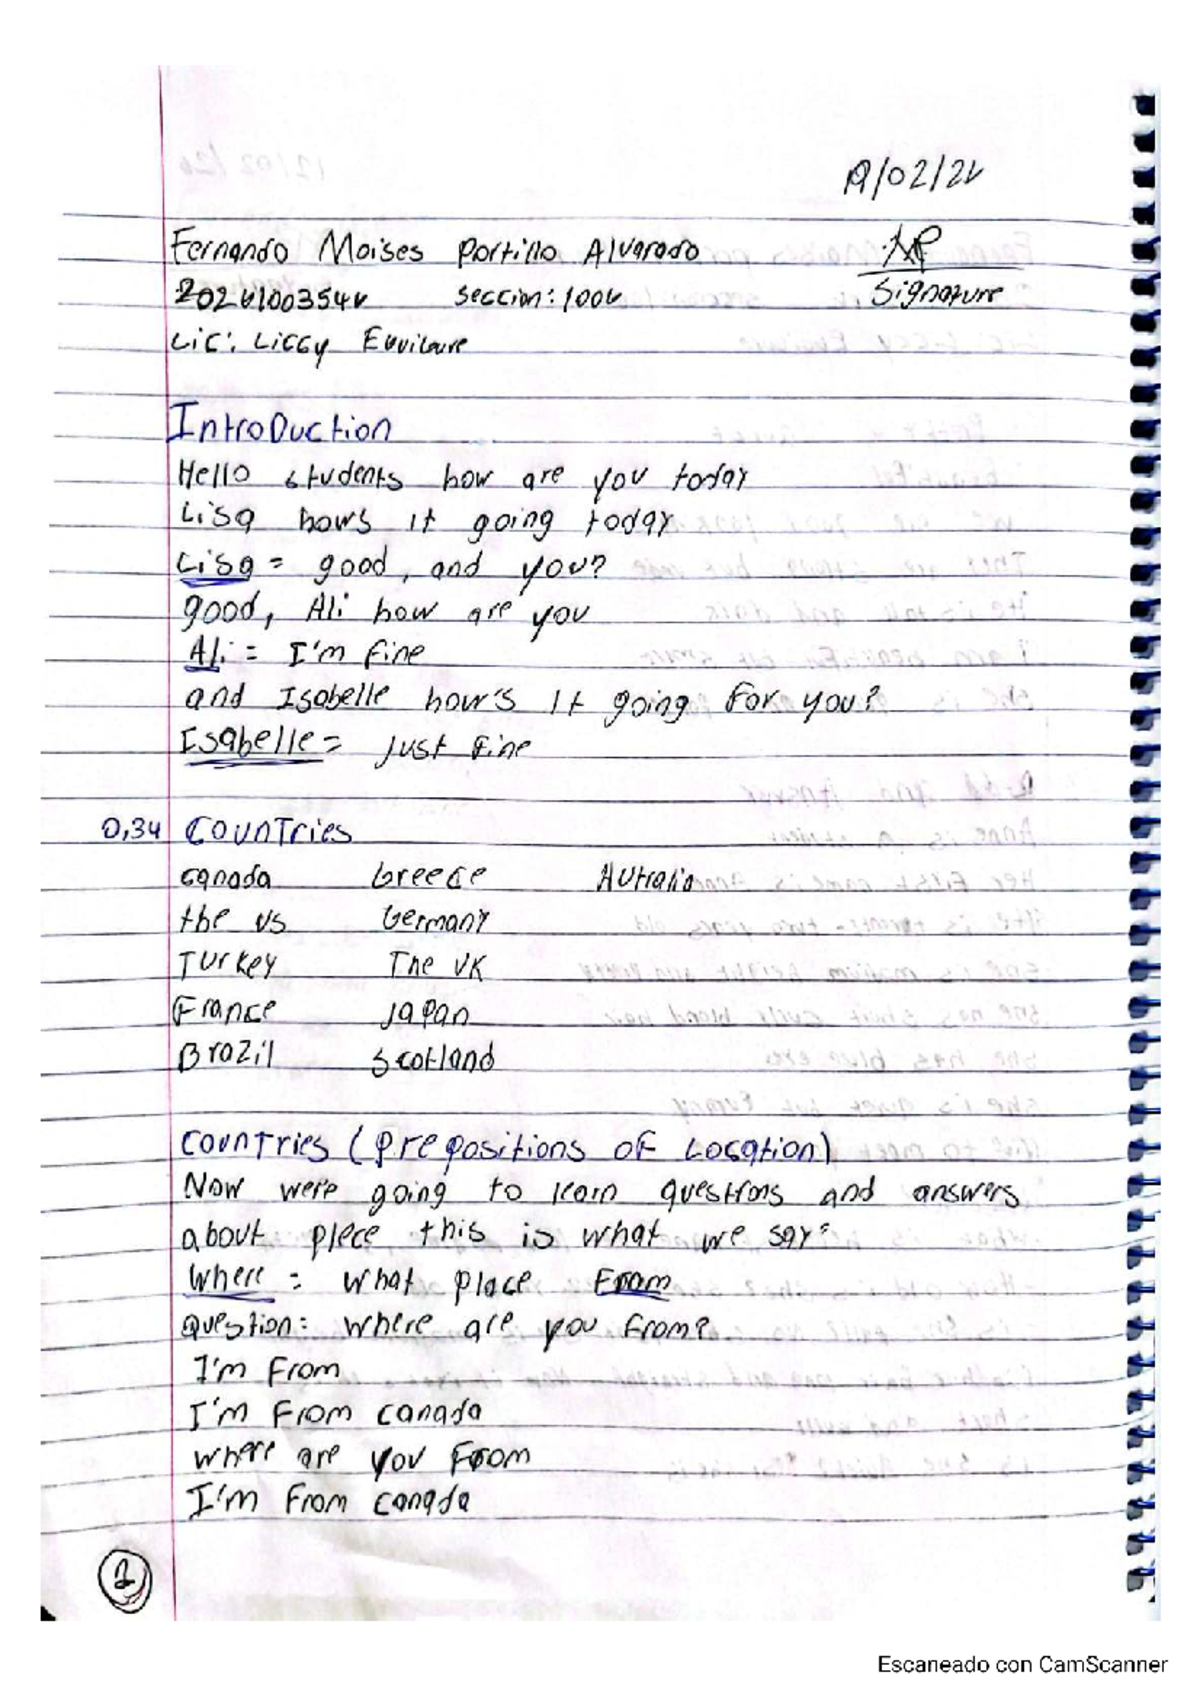 /02/24
Fernando Moises Portillo Alvarado
20241003544 Seccion: 1004 Signature
Lic: Liccy
Introduction
Hello students how are you today
Lisa hows it going today
Lisa = good, and you?
good, Ali how are you
Ali = I'm fine
and Isabelle how's it going for you?
Isabelle = Just fine
0,34 Countries
canada Greece Autralia
the us Germany
Turkey The UK
France Japan
Brazil Scotland
Countries (Prepositions of Location)
Now were going to learn questions and answers
about plece this is what we say:
Where = what place From
question: where are you from?
I'm From
I'm From canada
where are you From
I'm From canada
Escaneado con CamScanner